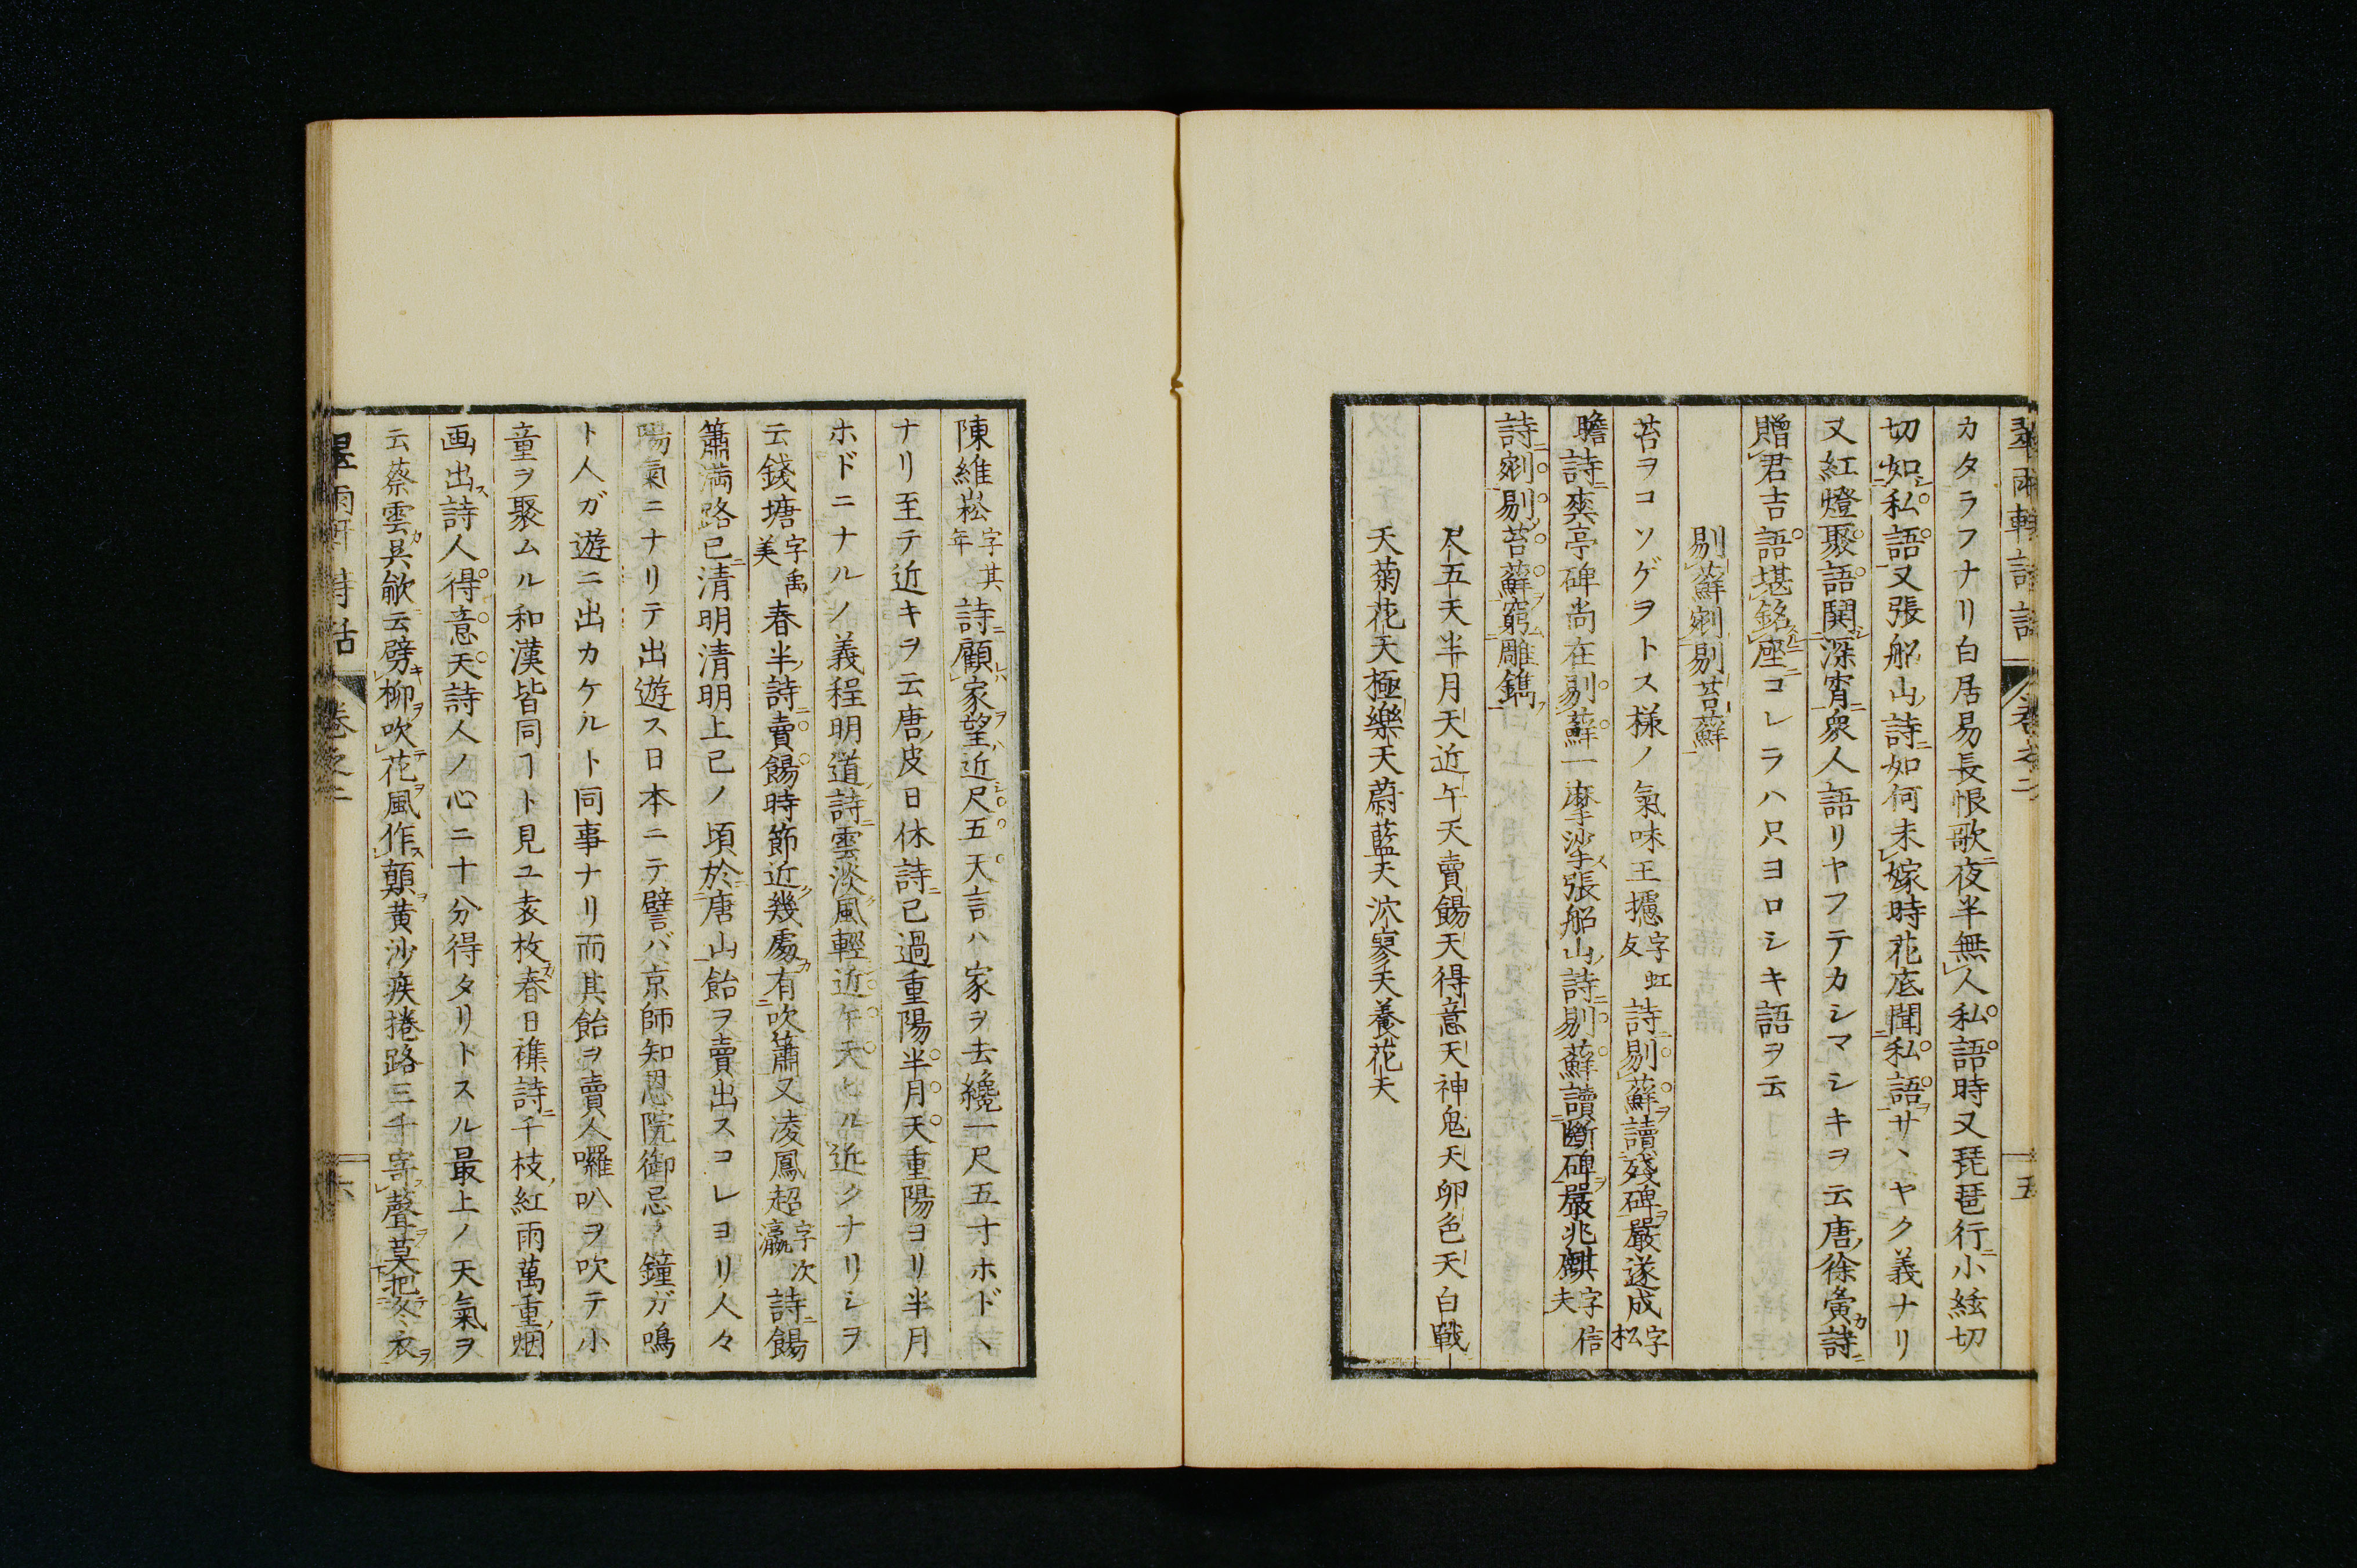 カタラフナリ白居易長恨歌ニ夜半無人私語時又琵琶行ニ小絃切
切如私語又張船山ノ詩ニ如何未嫁時花底聞私語サヽヤク義ナリ
又紅燈聚語闘深宵衆人語リヤフテカシマシキヲ云唐ノ徐夤カ詩ニ
贈君吉語堪銘座コレラハ只ヨロシキ語ヲ云
剔蘚 剜剔苔蘚
苔ヲコソゲヲトス様ノ氣味王攄字虹友詩ニ剔蘚讀殘碑嚴遂成字崧
瞻詩ニ爽亭碑尚在剔蘚一摩挲張船山ノ詩ニ剔蘚讀斷碑嚴兆麒字信夫
詩ニ剜剔苔蘚窮雕鐫
尺五天半月天近午天賣餳天得意天神鬼天卵色天白戰
天菊花天極樂天蔚藍天泬寥天養花天
陳維崧字其年詩ニ顧家望近尺五天言ハ家ヲ去纔一尺五寸ホドヽ
ナリ至テ近キヲ云唐ノ皮日休詩ニ已過重陽半月天重陽ヨリ半月
ホドニナルノ義程明道ノ詩ニ雲淡風輕近午天ヒル近クナリシヲ
云錢塘字禹美春半ノ詩ニ賣餳時節近幾處有吹簫又凌鳳超字次瀛詩ニ餳
簫満路已清明清明上巳ノ頃於唐山飴ヲ賣出スコレヨリ人々
陽氣ニナリテ出遊ス日本ニテ譬バ京師知恩院御忌ノ鐘ガ鳴
ト人ガ遊ニ出カケルト同事ナリ而其飴ヲ賣人囉叭ヲ吹テ小
童ヲ聚ムル和漢皆同ヿト見ユ袁枚春日襍詩ニ千枝紅雨萬重烟
画出詩人得意天詩人ノ心ニ十分得タリトスル最上ノ天氣ヲ
云蔡雲カ呉歈ニ云劈柳吹花風作顛黄沙疾捲路三千寄聲莫把冬衣
卷之二